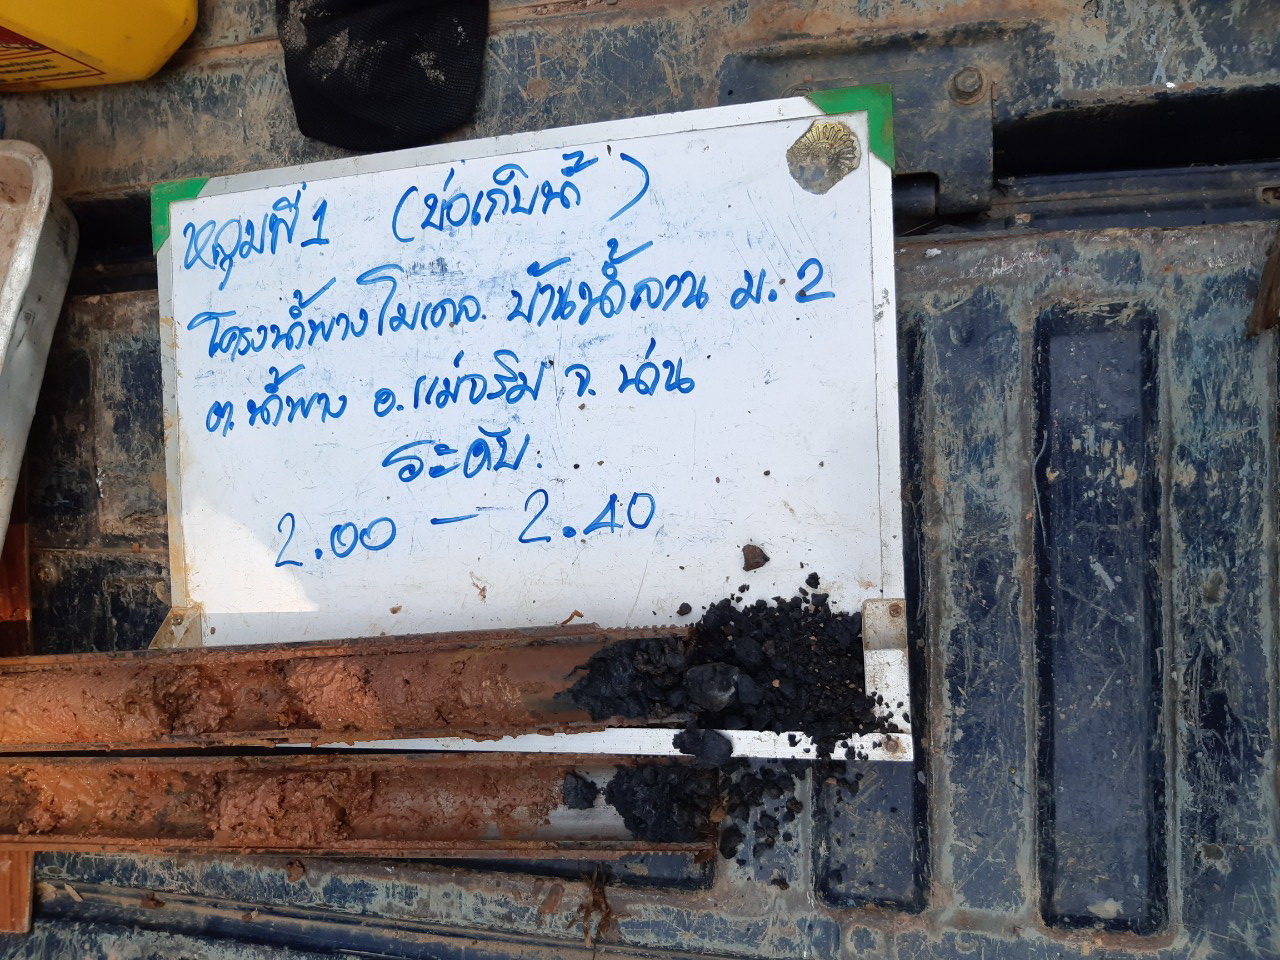 หลุมที่ 1 (บ่อเก็บน้ำ)
โครงน้ำพางโมเดล. บ้านน้ำลาน ม. 2
ต. น้ำพาง อ. แม่จริม จ. น่าน
ระดับ.
2.00 – 2.40